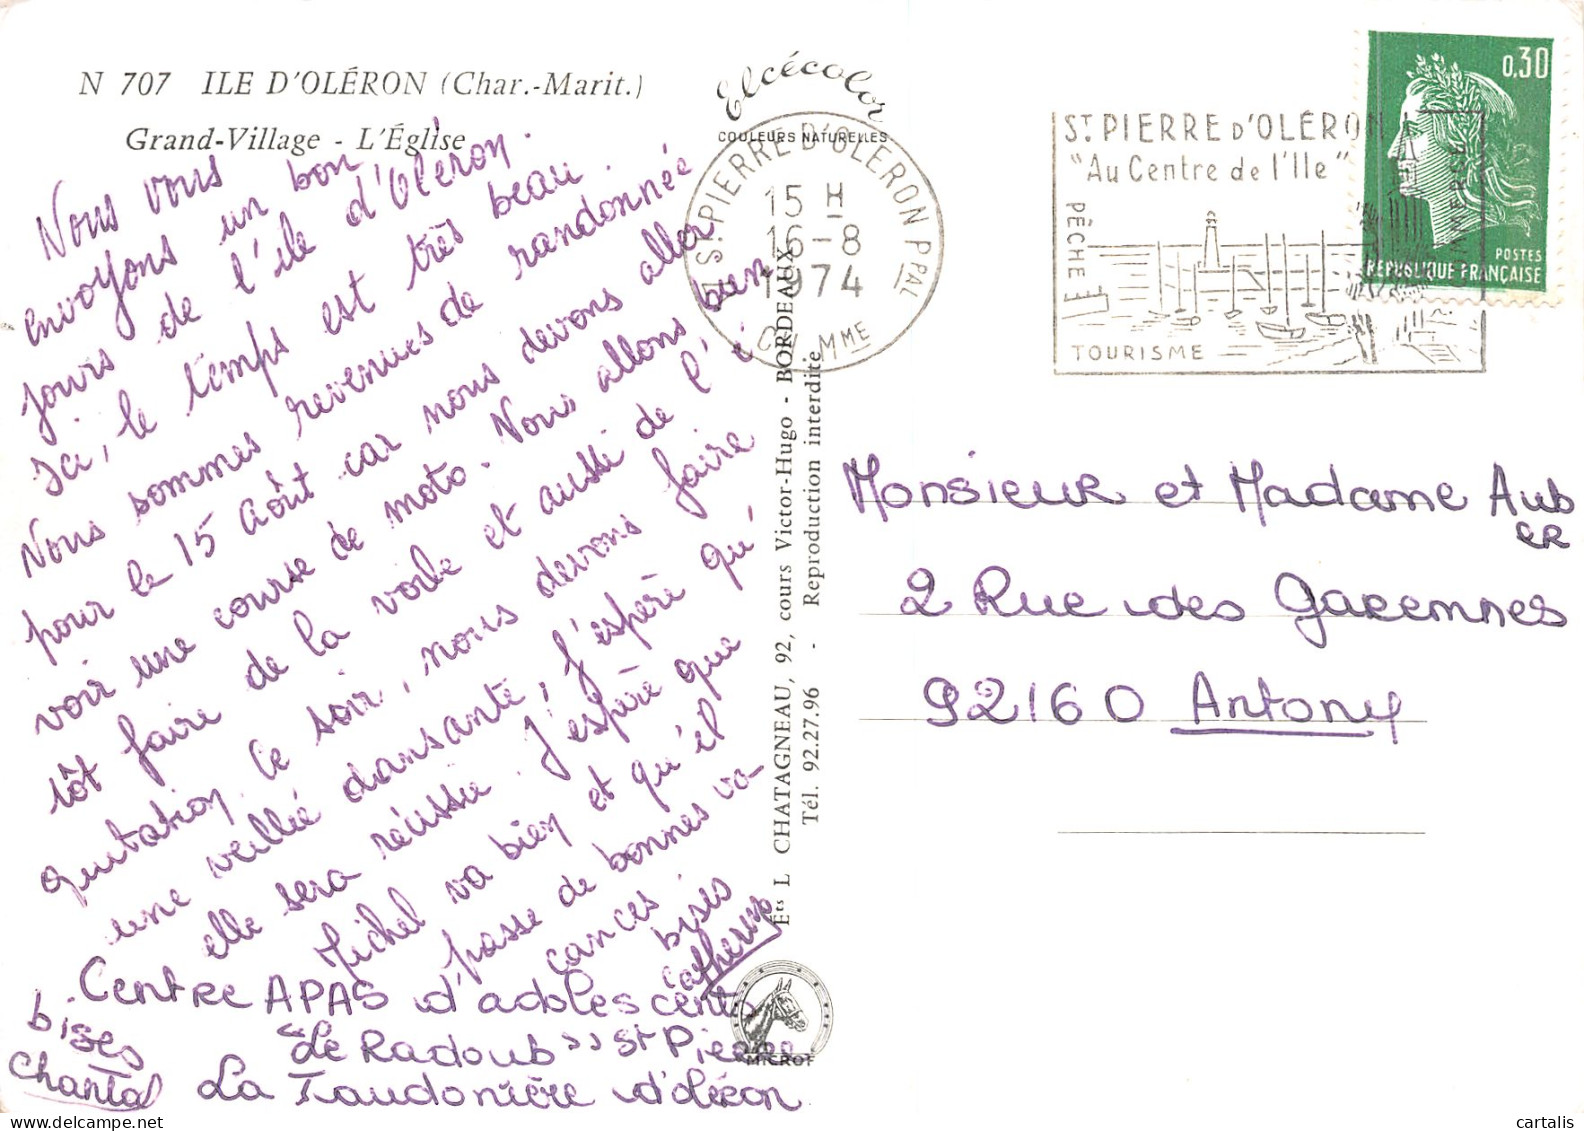 N 707 ILE D'OLÉRON (Char.-Marit.)
Grand-Village - L'Église
Elcécolor
COULEURS NATURELLES
Nous vous
envoyons un bon
jours de l'île d'Oléron.
Ici, le temps est très beau.
Nous sommes revenues de randonnée
pour le 15 Août car nous devons aller
voir une course de moto. Nous allons bien
tôt faire de la voile et aussi de l'é
quitation. Ce soir, nous devons faire
une veillée dansante, j'espère qu'
elle sera réussie. J'espère que
Michel va bien et qu'il
passe de bonnes va-
cances.
bises
Catherine
Centre APAS d'adolescents
"Le Radoub" St Pierre
La Taudonière d'oléron
bises
Chantal
Éts L CHATAGNEAU, 92, cours Victor-Hugo - BORDEAUX
Tél. 92.27.96 - Reproduction interdite
MICROF
17 ST PIERRE D'OLERON PPAL
15 H
16-8
1974
CH. MME
ST PIERRE D'OLÉRON
"Au Centre de l'Ile"
PÊCHE
COMMERCE
TOURISME
0,30
POSTES
REPUBLIQUE FRANÇAISE
Monsieur et Madame Aub
er
2 Rue des Garennes
92160 Antony
cartalis